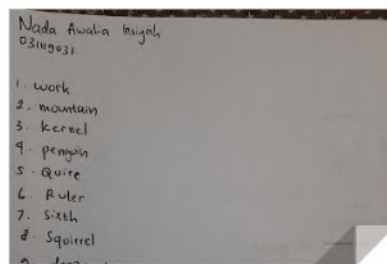 Nada Awalia Insiyah
03119031
1. work
2. mountain
3. kernel
4. penguin
5. Quire
6. Ruler
7. Sixth
8. Squirrel
9.